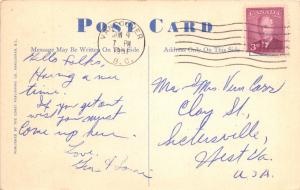 POST CARD
VANCOUVER
JAN 4
7 PM
1951
B.C.
3
Message May Be Written on This Side
Address Only On This Side
Hello Folks,
Having a nice
time.
If you get out
west you must
come up here.
Love,
Geo &
Mr & Mrs. Vern Carr
Clay St,
Sistersville,
West Va.
U.S.A.